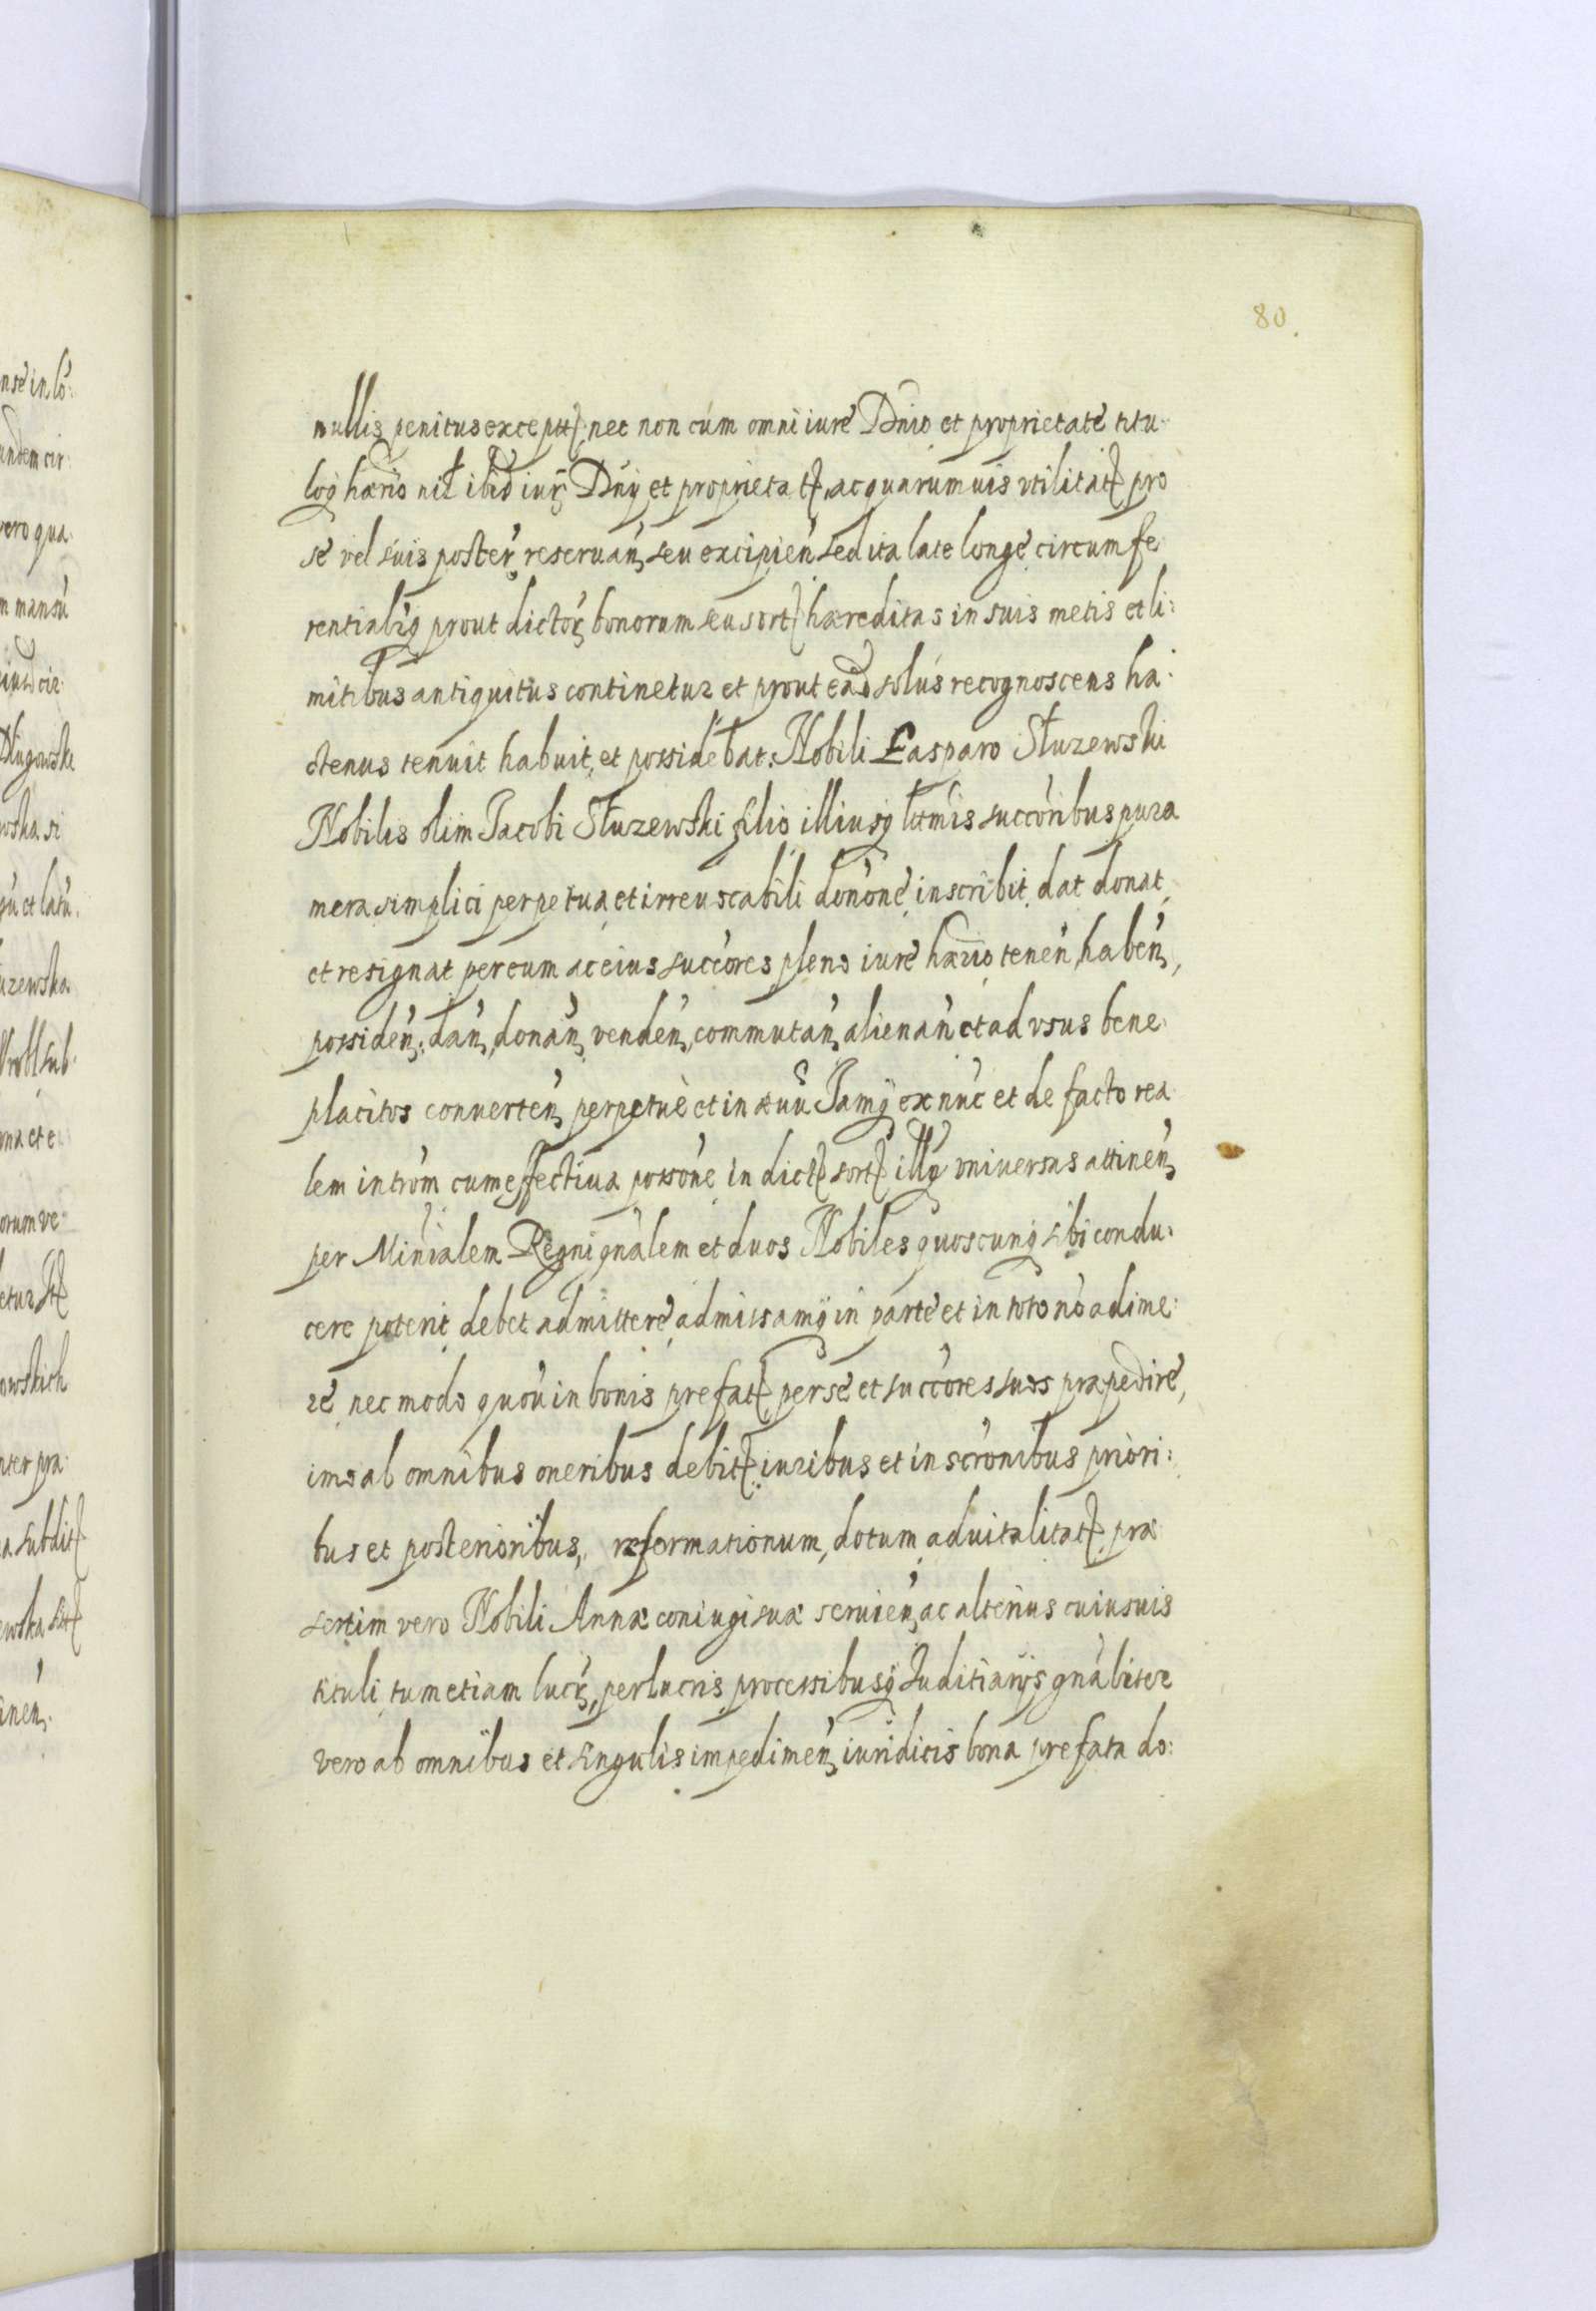 80.
nullis penitus exceptt, nec non cum omni iure Dnio et proprietate titu-
loq hærio nil ibid iur Dny et proprietat, ac quarumuis vtilitat pro
se vel suis poster reseruan, seu excipien sed ita late longe circumfe
rentialiq prout dictor bonorum seu sort hæreditas in suis metis et li:
mitibus antiquitus continetur et prout ead solus recognoscens ha-
ctenus tenuit habuit, et possidebat. Nobili Casparo Słuzewski
Nobilis olim Jacobi Słuzewski filio illiusq ltmis succoribus pura
mera simplici perpetua et irreuocabili donone, inscribit, dat donat,
et resignat per eum ac eius succores pleno iure hærio, tenen, haben,
possiden, dan, donan, venden, commutan, alienan et ad vsus bene-
placitos conuerten, perpetue et in æuu Jamq ex nuc et de facto rea
lem introm cum effectiua possone in dict sort illq vniversas attinen,
per Minialem Regni gnalem et duos Nobiles quoscunq sibi condu-
cere poterit, debet admittere, admissamq in parte et in toto no adime:
re, nec modo quou in bonis prefat, per se et succores suos præpedire,
imo ab omnibus oneribus debit, iuribus et inscronibus priori:
bus et posterioribus, reformationum, dotum aduitalitat, præ
sertim vero Nobili Annæ coniugi suæ seruien, ac alterius cuiusuis
tituli, tum etiam lucr, perlucris, processibusq Juditiarys gnaliter
vero ab omnibus et singulis impedimen, iuridicis bona prefata do: